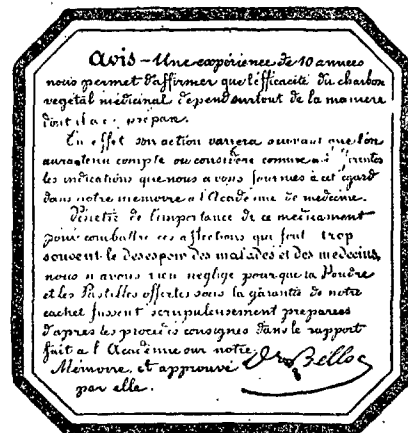 Avis - Une expérience de 10 années
nous permet d'affirmer que l'efficacité du charbon
végétal médicinal dépend surtout de la manière
dont il a été préparé.
En effet son action variera suivant que l'on
aura tenu compte ou considéré comme
les indications que nous avons fournies à cet égard
dans notre mémoire à l'Académie de médecine.
Pénétré de l'importance de ce médicament
pour combattre ces affections qui font trop
souvent le désespoir des malades et des médecins,
nous n'avons rien négligé pour que la Poudre
et les Pastilles offertes sous la garantie de notre
cachet fussent scrupuleusement préparées
d'après les procédés consignés dans le rapport
fait à l'Académie sur notre
Mémoire, et approuvé
par elle.
Dr Belloc